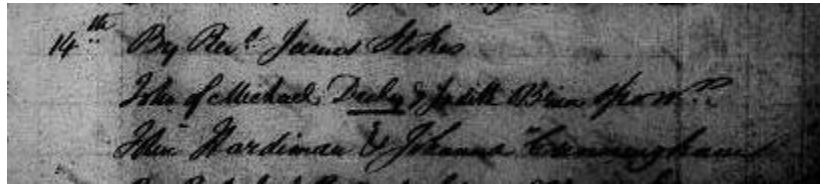 14th By Revd. James Stokes
John of Michael Derby & Judith Brien Sponrs.
John Hardiman & Johanna Cunningham